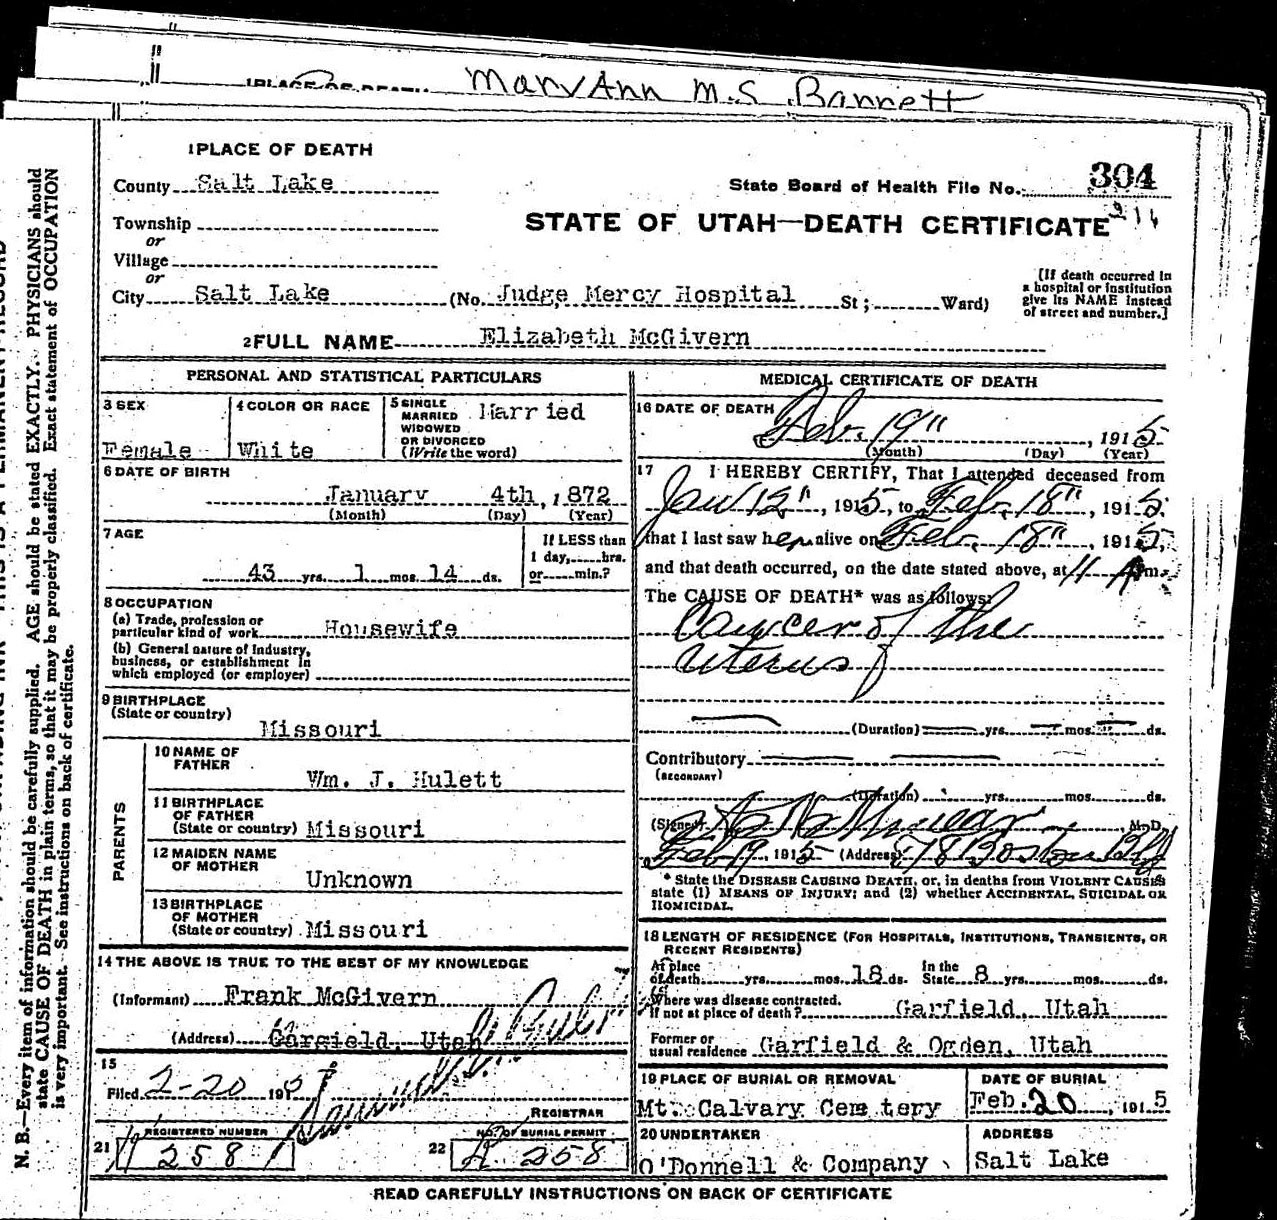 Mary Ann M.S. Barnett
1 PLACE OF DEATH
County Salt Lake
State Board of Health File No. 304
Township
STATE OF UTAH—DEATH CERTIFICATE
or
Village
or
City Salt Lake (No. Judge Mercy Hospital St; Ward)
[If death occurred in
a hospital or institution
give its NAME instead
of street and number.]
2 FULL NAME Elizabeth McGivern
PERSONAL AND STATISTICAL PARTICULARS
3 SEX
Female
4 COLOR OR RACE
White
5 SINGLE
MARRIED
WIDOWED
OR DIVORCED
(Write the word)
Married
6 DATE OF BIRTH
January 4th, 1872
(Month) (Day) (Year)
7 AGE
43 yrs. 1 mos. 14 ds.
If LESS than
1 day, hrs.
or min.?
8 OCCUPATION
(a) Trade, profession or
particular kind of work Housewife
(b) General nature of Industry,
business, or establishment in
which employed (or employer)
9 BIRTHPLACE
(State or country)
Missouri
PARENTS
10 NAME OF
FATHER
Wm. J. Hulett
11 BIRTHPLACE
OF FATHER
(State or country) Missouri
12 MAIDEN NAME
OF MOTHER
Unknown
13 BIRTHPLACE
OF MOTHER
(State or country) Missouri
14 THE ABOVE IS TRUE TO THE BEST OF MY KNOWLEDGE
(Informant) Frank McGivern
(Address) Garfield, Utah
15
Filed 2-20 1915
REGISTRAR
21 REGISTERED NUMBER
258
22 NO. OF BURIAL PERMIT
258
MEDICAL CERTIFICATE OF DEATH
16 DATE OF DEATH
Feb. 19", 1915
(Month) (Day) (Year)
17 I HEREBY CERTIFY, That I attended deceased from
Jan 12", 1915, to Feb. 18", 1915,
that I last saw her alive on Feb. 18", 1915,
and that death occurred, on the date stated above, at 11 A m.
The CAUSE OF DEATH* was as follows:
Cancer of the
Uterus
(Duration) yrs. mos. ds.
Contributory
(SECONDARY)
(Duration) yrs. mos. ds.
(Signed) M.D.
Feb 19, 1915 (Address) 78 Boston Bld
* State the DISEASE CAUSING DEATH, or, in deaths from VIOLENT CAUSES
state (1) MEANS OF INJURY; and (2) whether ACCIDENTAL, SUICIDAL OR
HOMICIDAL.
18 LENGTH OF RESIDENCE (FOR HOSPITALS, INSTITUTIONS, TRANSIENTS, OR
RECENT RESIDENTS)
At place
of death yrs. mos. 18 ds. In the
State 8 yrs. mos. ds.
Where was disease contracted,
if not at place of death? Garfield, Utah
Former or
usual residence Garfield & Ogden, Utah
19 PLACE OF BURIAL OR REMOVAL
Mt. Calvary Cemetery
DATE OF BURIAL
Feb. 20, 1915
20 UNDERTAKER
O'Donnell & Company
ADDRESS
Salt Lake
READ CAREFULLY INSTRUCTIONS ON BACK OF CERTIFICATE
N. B.—Every item of information should be carefully supplied. AGE should be stated EXACTLY. PHYSICIANS should
state CAUSE OF DEATH in plain terms, so that it may be properly classified. Exact statement of OCCUPATION
is very important. See instructions on back of certificate.